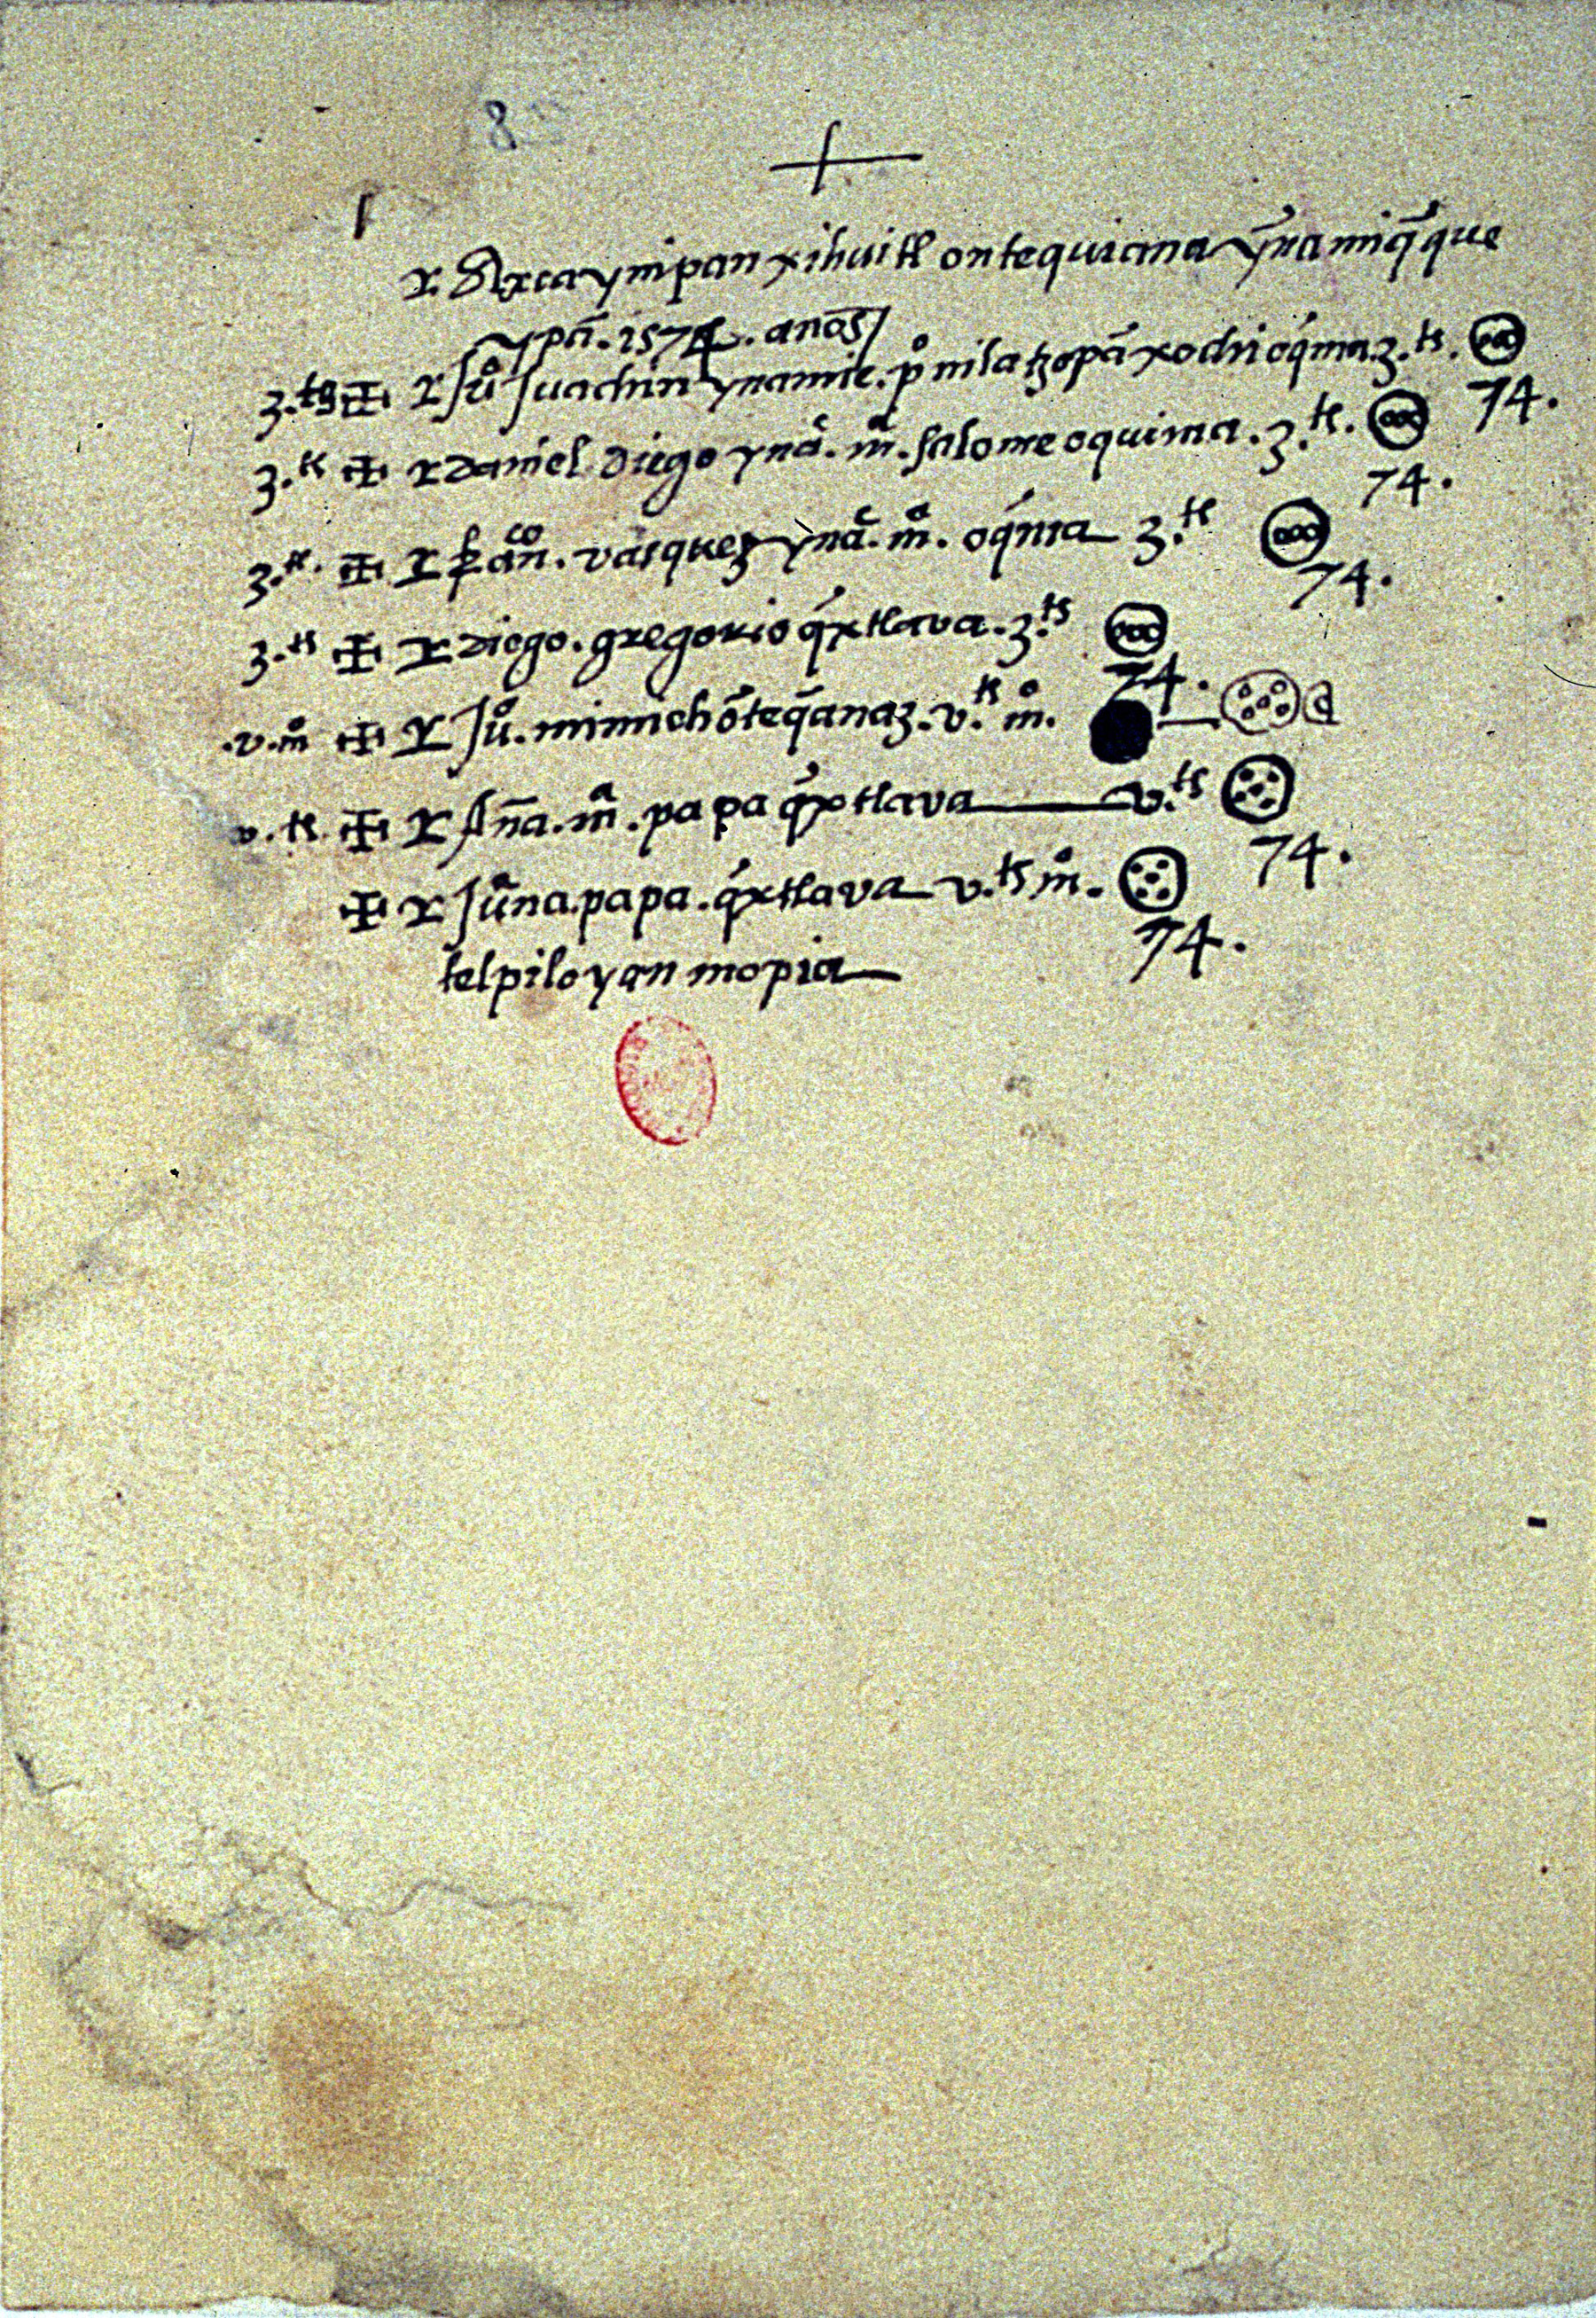 8
+
r. Axca ynipan xihuitl ontequicma ỹnamiq̃que
ypã. 1574. anõs
3. ts ✠ r Juº Juachin ynamic. pº nilatzopã xochi oq́ma 3. ts.
74.
3. ts ✠ r Daniel Diego ynã. mª. salome oquima. 3. ts.
74.
3. ts. ✠ r franco. vasquez ynã. mª. oq́ma 3. ts
74.
3. ts ✠ r Diego. gregorio q́xtlava. 3. ts
74.
.v. mº ✠ r Juº. mimichõteq̃anaz. v. ts mº.
v. ts. ✠ r Añã. mª. papa q́xtlava v. ts
74.
✠ r Juªna. papa. q́xtlava v. ts mº.
74.
telpiloyan mopia